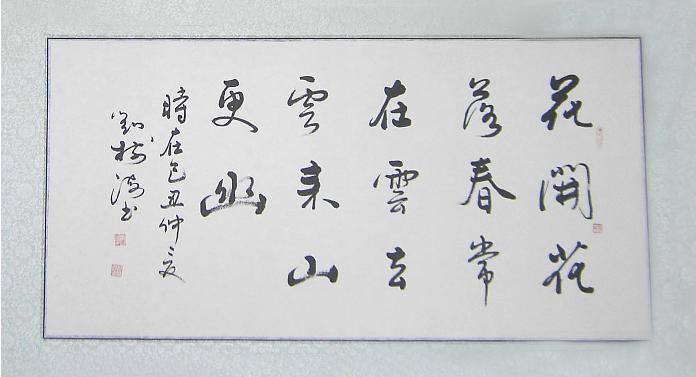 花開花
落春常
在雲去
雲来山
更幽
時在己丑仲夏
劉樹海書